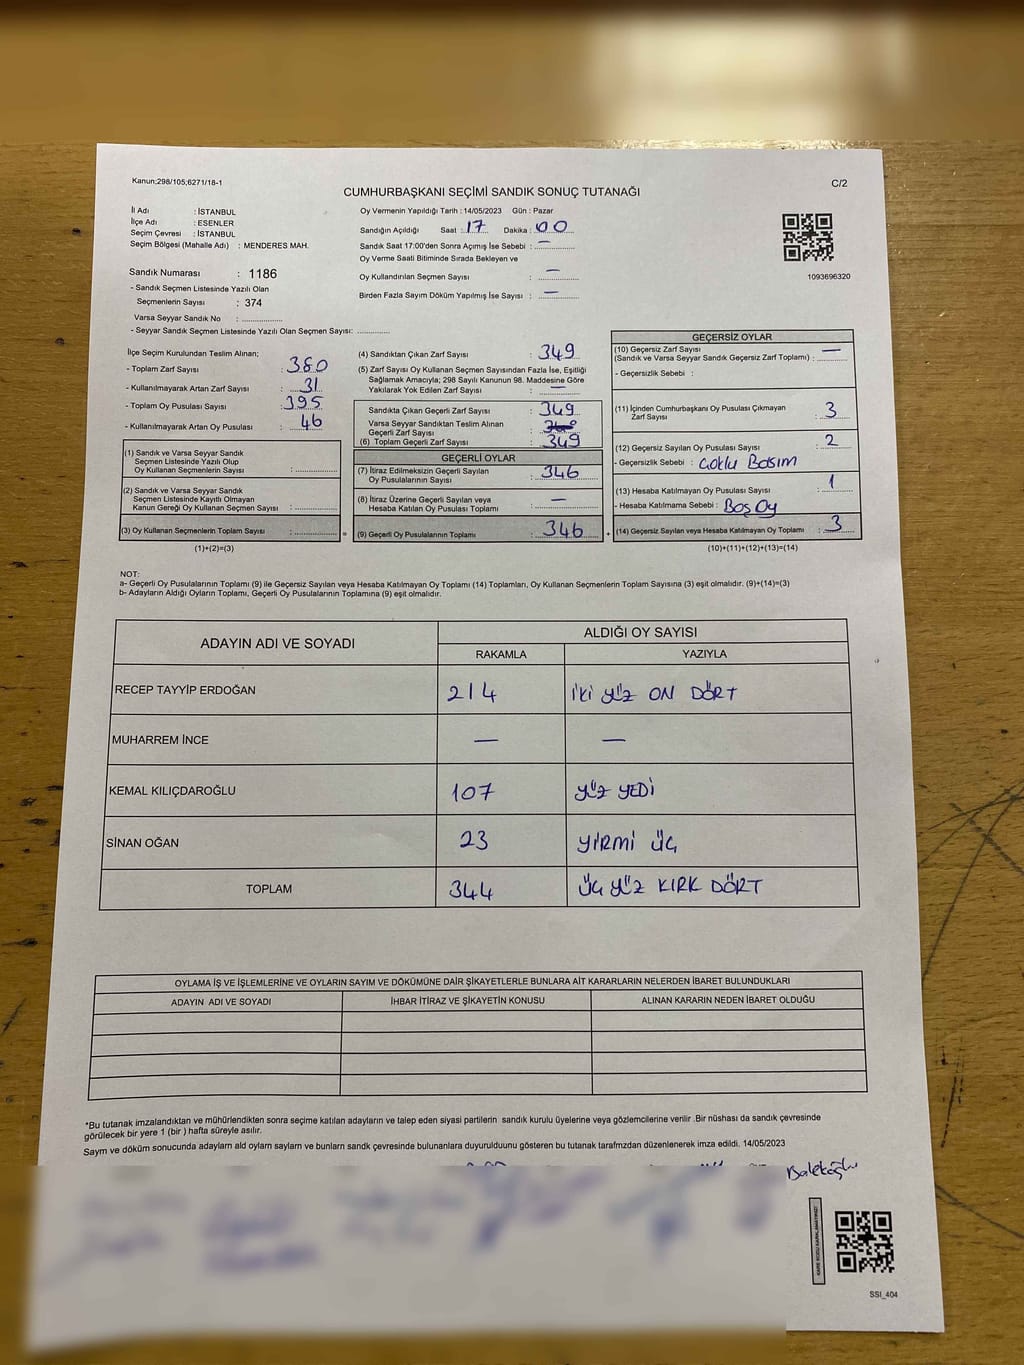 Kanun;298/105;6271/18-1
C/2
CUMHURBAŞKANI SEÇİMİ SANDIK SONUÇ TUTANAĞI
İl Adı : İSTANBUL
İlçe Adı : ESENLER
Seçim Çevresi : İSTANBUL
Seçim Bölgesi (Mahalle Adı) : MENDERES MAH.
Sandık Numarası : 1186
- Sandık Seçmen Listesinde Yazılı Olan
Seçmenlerin Sayısı : 374
Varsa Seyyar Sandık No :
- Seyyar Sandık Seçmen Listesinde Yazılı Olan Seçmen Sayısı:
Oy Vermenin Yapıldığı Tarih : 14/05/2023 Gün : Pazar
Sandığın Açıldığı Saat : 17 Dakika : 00
Sandık Saat 17:00'den Sonra Açılmış İse Sebebi : —
Oy Verme Saati Bitiminde Sırada Bekleyen ve
Oy Kullandırılan Seçmen Sayısı : —
Birden Fazla Sayım Döküm Yapılmış İse Sayısı : —
1093696320
İlçe Seçim Kurulundan Teslim Alınan;
- Toplam Zarf Sayısı : 380
- Kullanılmayarak Artan Zarf Sayısı : 31
- Toplam Oy Pusulası Sayısı : 395
- Kullanılmayarak Artan Oy Pusulası : 46
(1) Sandık ve Varsa Seyyar Sandık
Seçmen Listesinde Yazılı Olup
Oy Kullanan Seçmenlerin Sayısı :
(2) Sandık ve Varsa Seyyar Sandık
Seçmen Listesinde Kayıtlı Olmayan
Kanun Gereği Oy Kullanan Seçmen Sayısı :
(3) Oy Kullanan Seçmenlerin Toplam Sayısı :
(1)+(2)=(3)
(4) Sandıktan Çıkan Zarf Sayısı : 349
(5) Zarf Sayısı Oy Kullanan Seçmen Sayısından Fazla İse, Eşitliği
Sağlamak Amacıyla; 298 Sayılı Kanunun 98. Maddesine Göre
Yakılarak Yok Edilen Zarf Sayısı : —
Sandıkta Çıkan Geçerli Zarf Sayısı : 349
Varsa Seyyar Sandıktan Teslim Alınan
Geçerli Zarf Sayısı :
(6) Toplam Geçerli Zarf Sayısı : 349
GEÇERLİ OYLAR
(7) İtiraz Edilmeksizin Geçerli Sayılan
Oy Pusulalarının Sayısı : 346
(8) İtiraz Üzerine Geçerli Sayılan veya
Hesaba Katılan Oy Pusulası Toplamı : —
= (9) Geçerli Oy Pusulalarının Toplamı : 346 +
GEÇERSİZ OYLAR
(10) Geçersiz Zarf Sayısı —
(Sandık ve Varsa Seyyar Sandık Geçersiz Zarf Toplamı) :
- Geçersizlik Sebebi :
(11) İçinden Cumhurbaşkanı Oy Pusulası Çıkmayan
Zarf Sayısı : 3
(12) Geçersiz Sayılan Oy Pusulası Sayısı : 2
- Geçersizlik Sebebi : Çoklu Basım
(13) Hesaba Katılmayan Oy Pusulası Sayısı : 1
- Hesaba Katılmama Sebebi : Boş Oy
(14) Geçersiz Sayılan veya Hesaba Katılmayan Oy Toplamı : 3
(10)+(11)+(12)+(13)=(14)
NOT:
a- Geçerli Oy Pusulalarının Toplamı (9) ile Geçersiz Sayılan veya Hesaba Katılmayan Oy Toplamı (14) Toplamları, Oy Kullanan Seçmenlerin Toplam Sayısına (3) eşit olmalıdır. (9)+(14)=(3)
b- Adayların Aldığı Oyların Toplamı, Geçerli Oy Pusulalarının Toplamına (9) eşit olmalıdır.
ADAYIN ADI VE SOYADI
ALDIĞI OY SAYISI
RAKAMLA YAZIYLA
RECEP TAYYİP ERDOĞAN 214 İKİ YÜZ ON DÖRT
MUHARREM İNCE — —
KEMAL KILIÇDAROĞLU 107 YÜZ YEDİ
SİNAN OĞAN 23 YİRMİ ÜÇ
TOPLAM 344 ÜÇ YÜZ KIRK DÖRT
OYLAMA İŞ VE İŞLEMLERİNE VE OYLARIN SAYIM VE DÖKÜMÜNE DAİR ŞİKAYETLERLE BUNLARA AİT KARARLARIN NELERDEN İBARET BULUNDUKLARI
ADAYIN ADI VE SOYADI İHBAR İTİRAZ VE ŞİKAYETİN KONUSU ALINAN KARARIN NEDEN İBARET OLDUĞU
*Bu tutanak imzalandıktan ve mühürlendikten sonra seçime katılan adayların ve talep eden siyasi partilerin sandık kurulu üyelerine veya gözlemcilerine verilir .Bir nüshası da sandık çevresinde
görülecek bir yere 1 (bir ) hafta süreyle asılır.
Saym ve döküm sonucunda adaylarn ald oylarn saylarn ve bunlarn sandk çevresinde bulunanlara duyurulduunu gösteren bu tutanak tarafmzdan düzenlenerek imza edildi. 14/05/2023
SSI_404